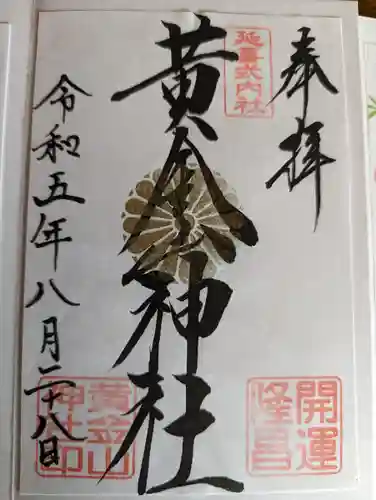 奉拝
延喜式内社
開運
隆昌
黄金神社
黄金山
神社印
令和五年八月二十八日